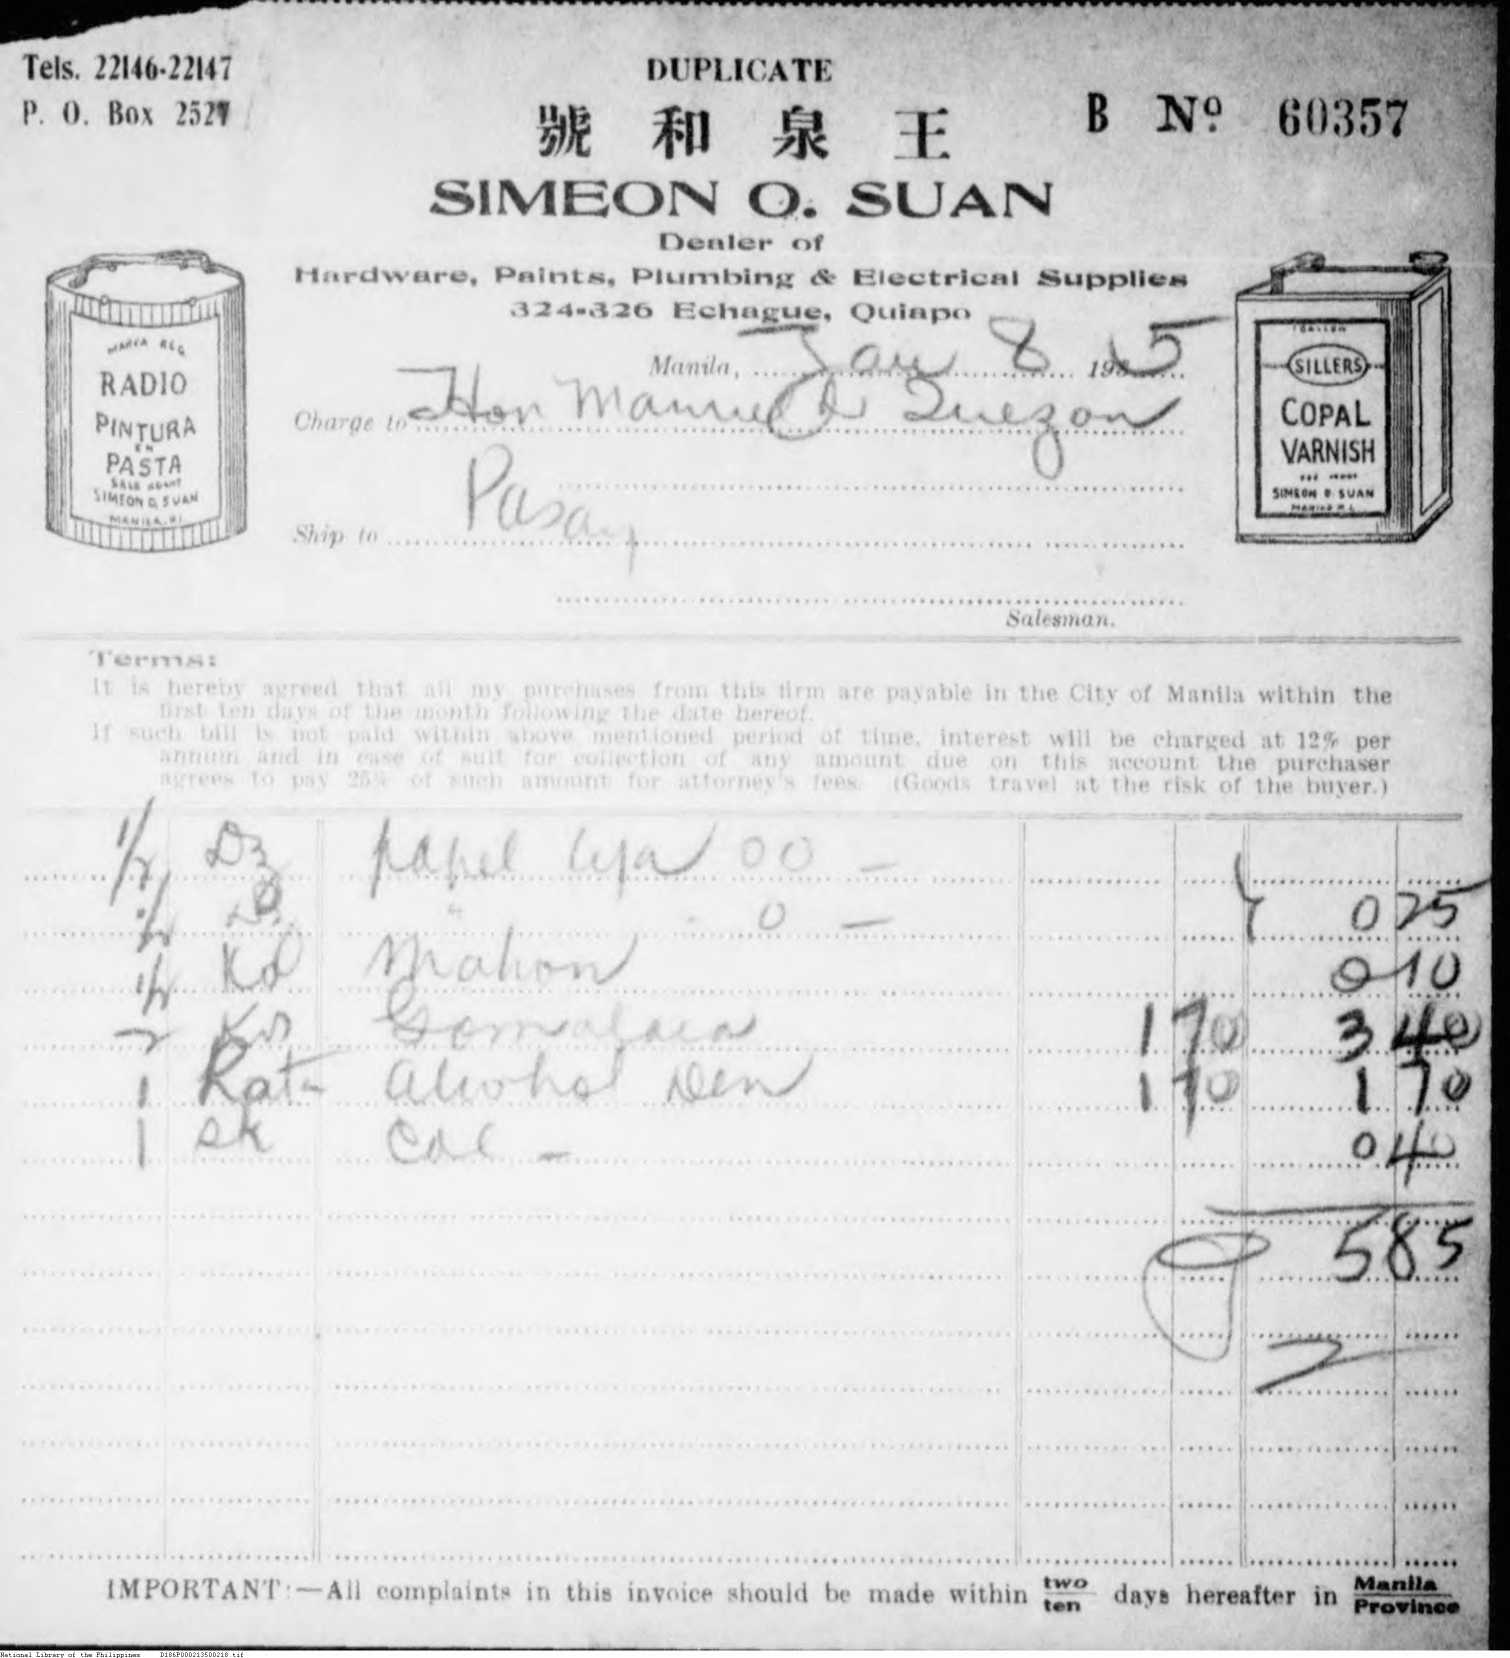 Tels. 22146-22147
P. O. Box 2527
DUPLICATE
B Nº 60357
號 和 泉 王
SIMEON O. SUAN
Dealer of
Hardware, Paints, Plumbing & Electrical Supplies
324-326 Echague, Quiapo
MARCA REG
RADIO
PINTURA
EN
PASTA
SALE AGENT
SIMEON O. SUAN
MANILA, P.I.
1 GALLON
SILLERS
COPAL
VARNISH
SIMEON O. SUAN
MANILA P. I.
Manila, Jan 8 1935
Charge to Hon Manuel L Quezon
Pasay
Ship to
Salesman.
Terms:
It is hereby agreed that all my purchases from this firm are payable in the City of Manila within the
first ten days of the month following the date hereof.
If such bill is not paid within above mentioned period of time, interest will be charged at 12% per
annum and in case of suit for collection of any amount due on this account the purchaser
agrees to pay 25% of such amount for attorney's fees. (Goods travel at the risk of the buyer.)
1/2 Dz papel lija 00 —
1/2 Dz " 0 — 0 25
1/2 Kl Mahon 0 10
2 Ks Gomalaca 1 70 3 40
1 Lata Alcohol Den 1 70 1 70
1 sk Cal — 0 40
5 85
IMPORTANT:—All complaints in this invoice should be made within two/ten days hereafter in Manila/Province
National Library of the Philippines D186P000213500218.tif